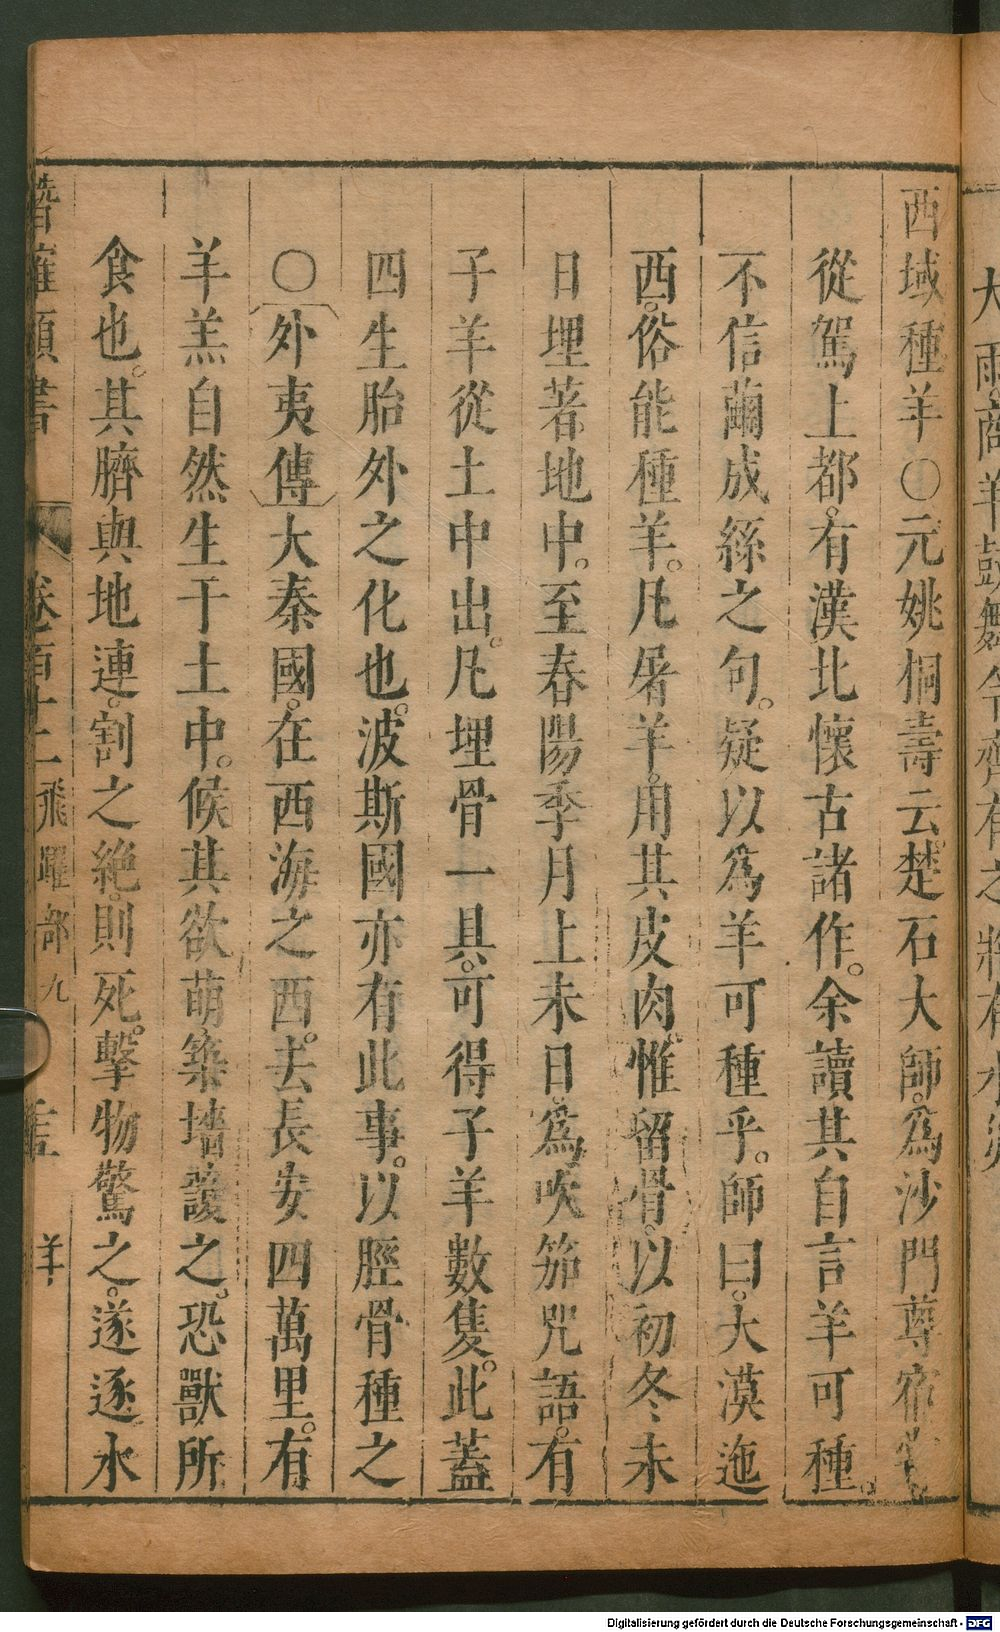 大雨商羊鼓舞今齊有之將有水災
西域種羊○元姚桐壽云楚石大師爲沙門尊宿
從駕上都有漠北懷古諸作余讀其自言羊可種
不信繭成絲之句疑以爲羊可種乎師曰大漠迤
西俗能種羊凡屠羊用其皮肉惟留骨以初冬未
日埋著地中至春陽季月上未日爲吹笳咒語有
子羊從土中出凡埋骨一具可得子羊數隻此蓋
四生胎外之化也波斯國亦有此事以脛骨種之
○外夷傳大秦國在西海之西去長安四萬里有
羊羔自然生于土中候其欲萌築墻護之恐獸所
食也其臍與地連割之絶則死擊物驚之遂逐水
潛確類書 卷百十二 飛躍部九 羊
Digitalisierung gefördert durch die Deutsche Forschungsgemeinschaft - DFG